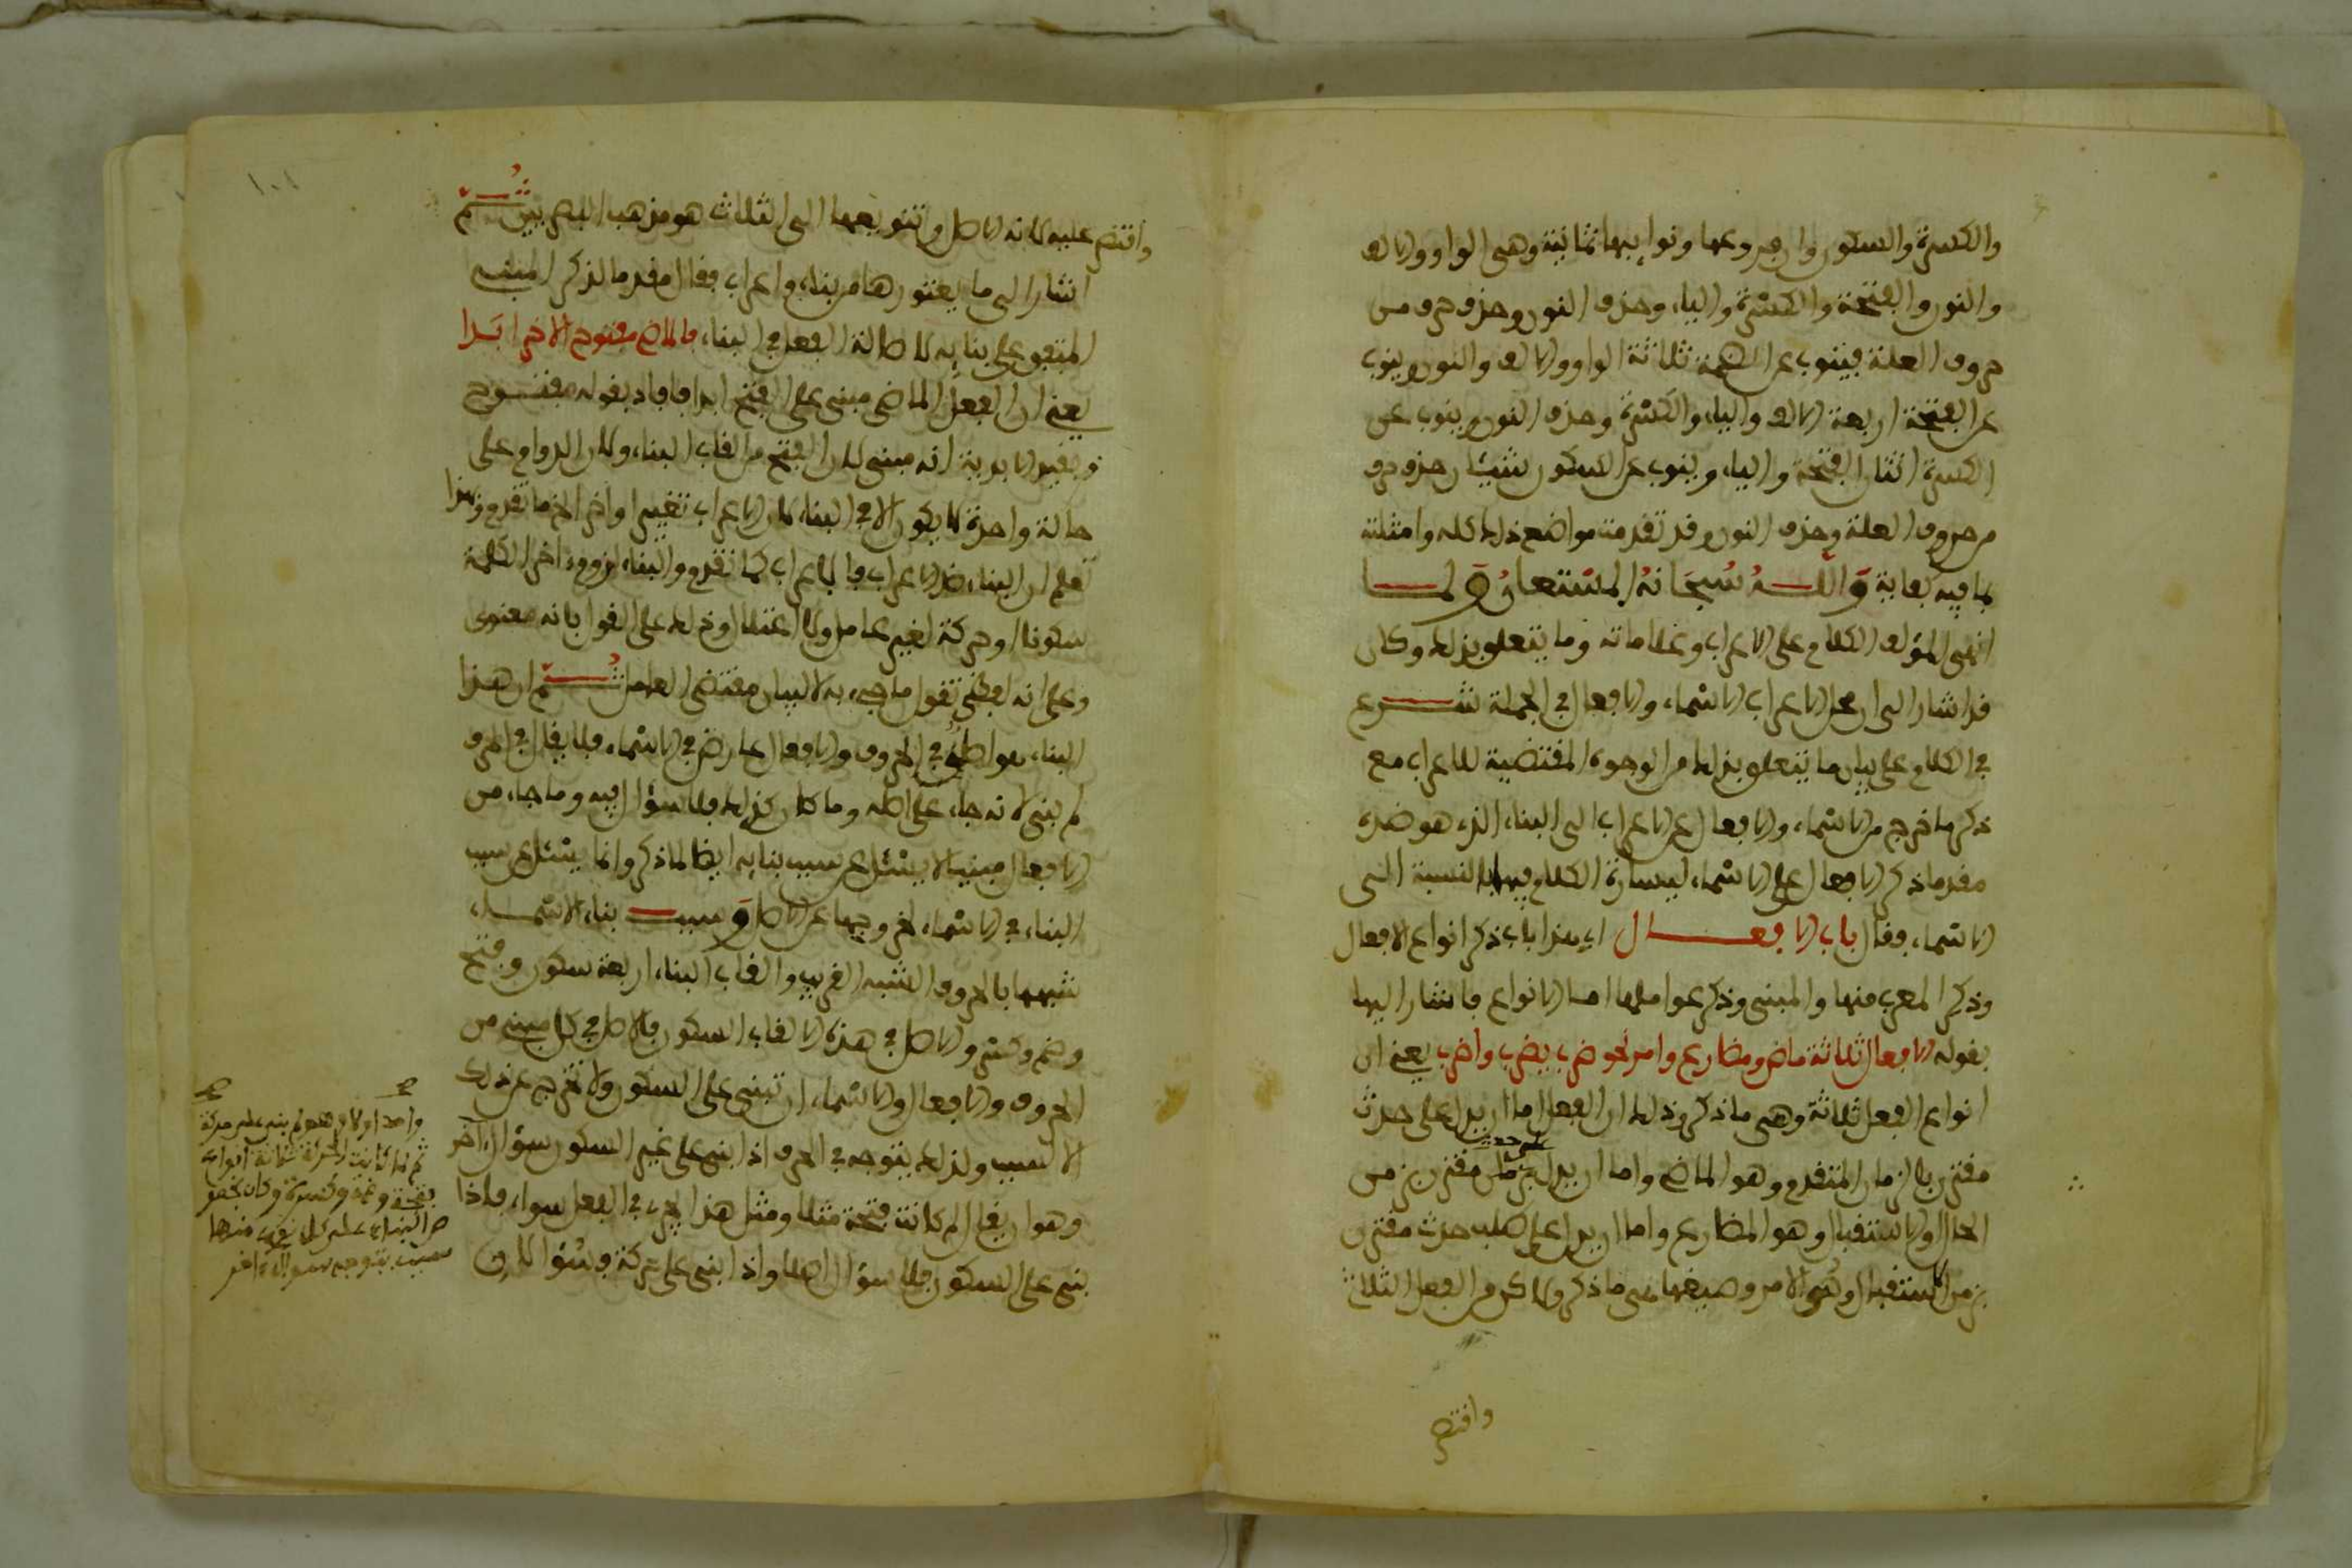 والكسرة والسكون وان فروعها ونوايبها ثمانية وهى الواو والالف
والنون والفتحة والكسرة والياء وحذف النون وحذف حرف من
حروف العلة فينوب عن الضمة ثلاثة الواو والالف والنون وينوب
عن الفتحة اربعة الالف والياء والكسرة وحذف النون وينوب عن
الكسرة اثنان الفتحة والياء وينوب عن السكون شيئان حذف حرف
من حروف العلة وحذف النون وقد تقدمت مواضع ذلك كله وامثلته
بما فيه كفاية وَاللـــهُ سُبحَانهُ المسْتعانُ وَلمــــا
انهى المؤلف الكلام على الاعراب وعلاماته وما يتعلق بذلك وكان
قد اشار الى ان محل الاعراب الاسماء والافعال فى الجملة شــــرع
فى الكلام على بيان ما يتعلق بذلك من الوجوه المقتضية للاعراب مع
ذكر ما خرج من الاسماء والافعال عن الاعراب الى البناء الذى هو ضده
مقدما ذكر الافعال على الاسماء ليسارة الكلام فيها بالنسبة الى
الاسماء فقال باب الافعـــــال اى هذا باب ذكر انواع الافعال
وذكر المعرب منها والمبنى وذكر عواملها اما الانواع فاشار اليها
بقوله الافعال ثلاثة ماض ومضارع وامر نحو ضرب يضرب واضرب يعنى ان
انواع الفعل ثلاثة وهى ما ذكر وذلك ان الفعل اما ان يدل على حدث
مقترن بالزمان المتقدم وهو الماضى واما ان يدل على حدث مقترن بزمن
الحال والاستقبال وهو المضارع واما ان يدل على طلب حدث مقترن
بزمن الاستقبال وهو الامر وصيغها هى ما ذكر ولما كرر الفعل الثلاث
واقتصر
واقتصر عليه لانه الاصل وتنويعها الى الثلاث هو مذهب البصريين ثُــــمّ
اشار الى ما يعتورها من بناء واعراب فقال مقدما لذكر المبنى
المتفق على بنايه لاصالة الفعل فى البناء فالماضى مفتوح الاخر ابَدا
يعنى ان الفعل الماضى مبنى على الفتح ابدا فافاد بقوله مفتـــوح
وبقيد الابدية انه مبنى لان الفتح من القاب البناء ولان الدوام على
حالة واحدة لا يكون الا فى البناء لان الاعراب تغيير اواخر الخ ما تقدم وبهذا
تعلم ان البناء ضد الاعراب فالاعراب كما تقدم والبناء لزوم ءاخر الكلمة
سكونا او حركة لغير عامل ولا اعتلال وذلك على القول بانه معنوى
وعلى انه لفظى تقول ما جىء به لا لبيان مقتضى العامل ثُــــمّ ان هذا
البناء هو اصل فى الحروف والافعال عارض فى الاسماء فلا يقال فى الحرف
لم بنى لانه جاء على اصله وما كان كذلك فلا سؤال فيه وما جاء من
الافعال مبنيا لا يسئل عن سبب بنايه ايضا لما ذكر وانما يسئل عن سبب
البناء فى الاسماء لخروجها عن الاصل وَسبـــب بناء الاسْمــاء
شبهها بالحروف الشبه القريب والقاب البناء اربعة سكون وفتح
وضم وكسر والاصل فى هذه الالقاب السكون فالاصل فى كل مبنى من
الحروف والافعال والاسماء ان تبنى على السكون ولا تخرج عن ذلك
الا لسبب ولذلك يتوجه فى الحرف اذا بنى على غير السكون سؤال ءاخر
وهو ان يقال لم كانت فتحة مثلا ومثل هذا يجىء فى الفعل سواء فاذا
بنى على السكون فلا سؤال اصلا واذا بنى على حركة فسُؤالان
واحد اولا وهو لم بنى على حركة
ثم لما كانت الحركة ثلاثة انواع
فتحة وضمة وكسرة وكان تخص
البناء على كل نوع منها
سبب يتوجه سؤال ءاخر